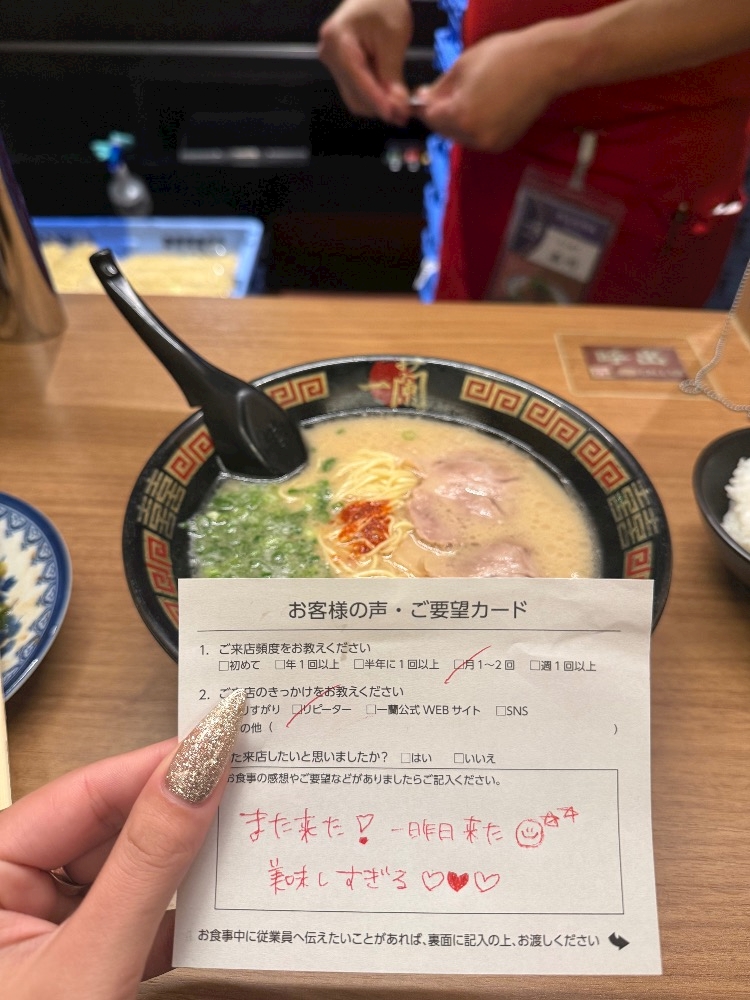 一蘭
お客様の声・ご要望カード
1. ご来店頻度をお教えください
□初めて □年1回以上 □半年に1回以上 □月1〜2回 □週1回以上
2. ご 店のきっかけをお教えください
りすがり □リピーター □一蘭公式WEBサイト □SNS
の他（ ）
た来店したいと思いましたか? □はい □いいえ
お食事の感想やご要望などがありましたらご記入ください。
また来た! 一昨日来た
美味しすぎる♡♥♡
お食事中に従業員へ伝えたいことがあれば、裏面に記入の上、お渡しください